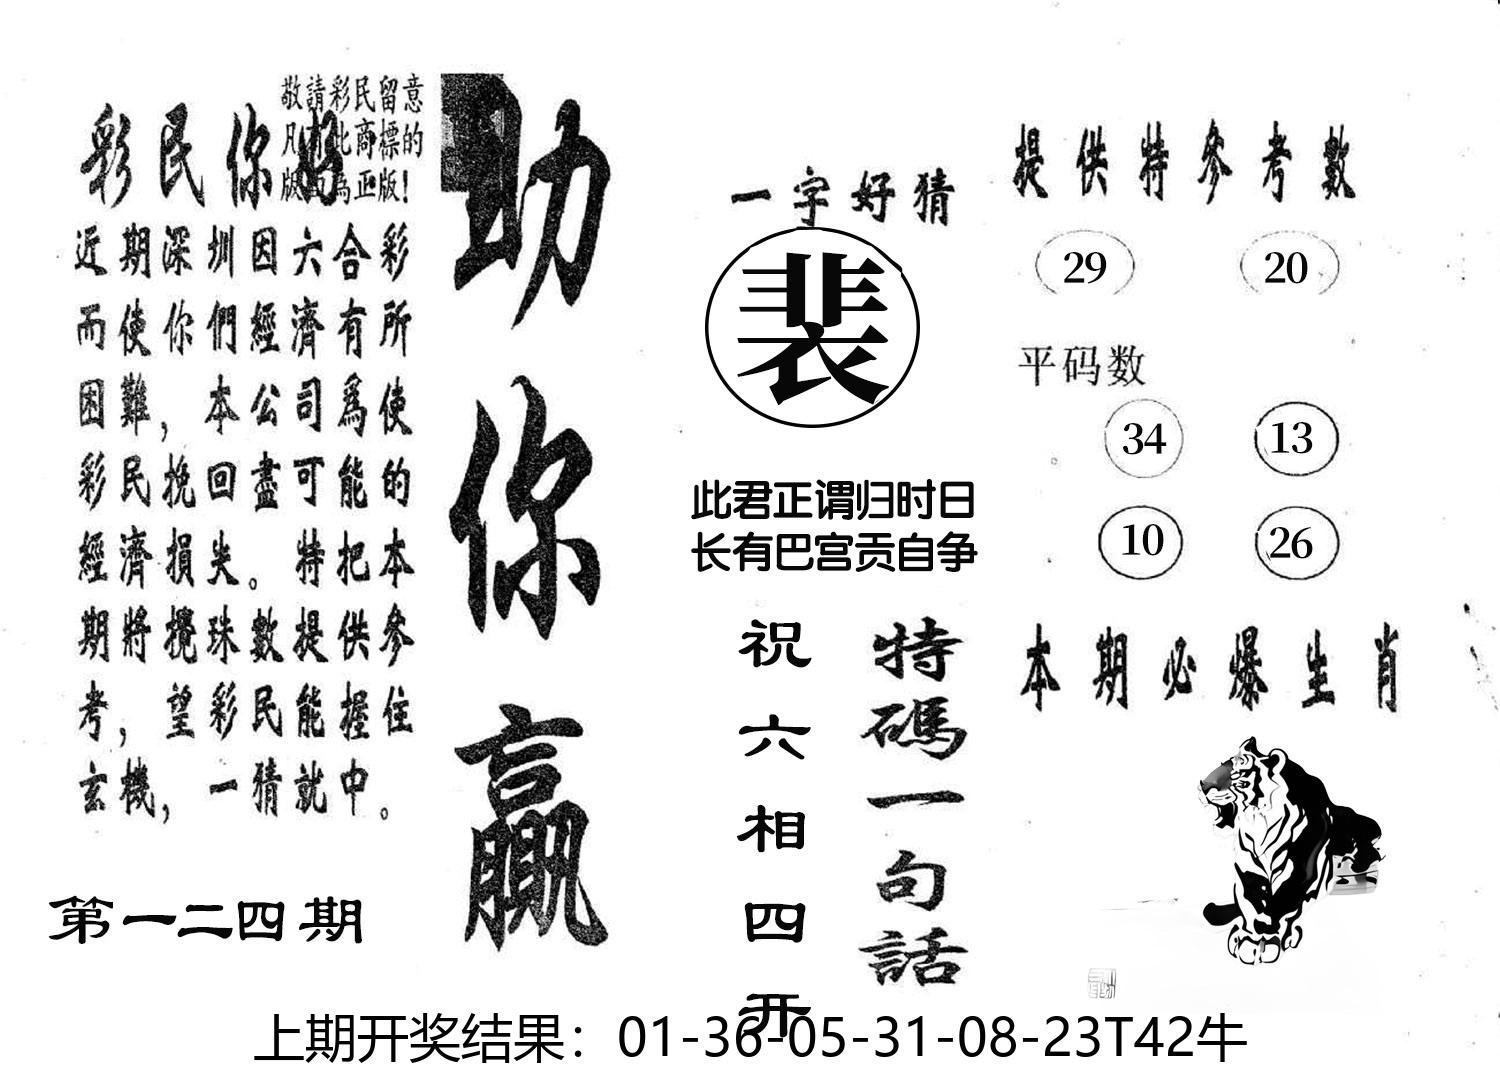 敬請彩民留意
凡有此商標的
版面為正版！
彩民你好
近期深圳因六合彩
而使你們經濟有所
困難，本公司爲使
彩民挽回盡可能的
經濟損失。特把本
期將攪珠數提供參
考，望彩民能握住
玄機，一猜就中。
第一二四期
助你赢
一字好猜
裴
此君正谓归时日
长有巴宫贡自争
祝六相四开
特碼一句話
提供特參考數
29 20
平码数
34 13
10 26
本期必爆生肖
上期开奖结果：01-36-05-31-08-23T42牛